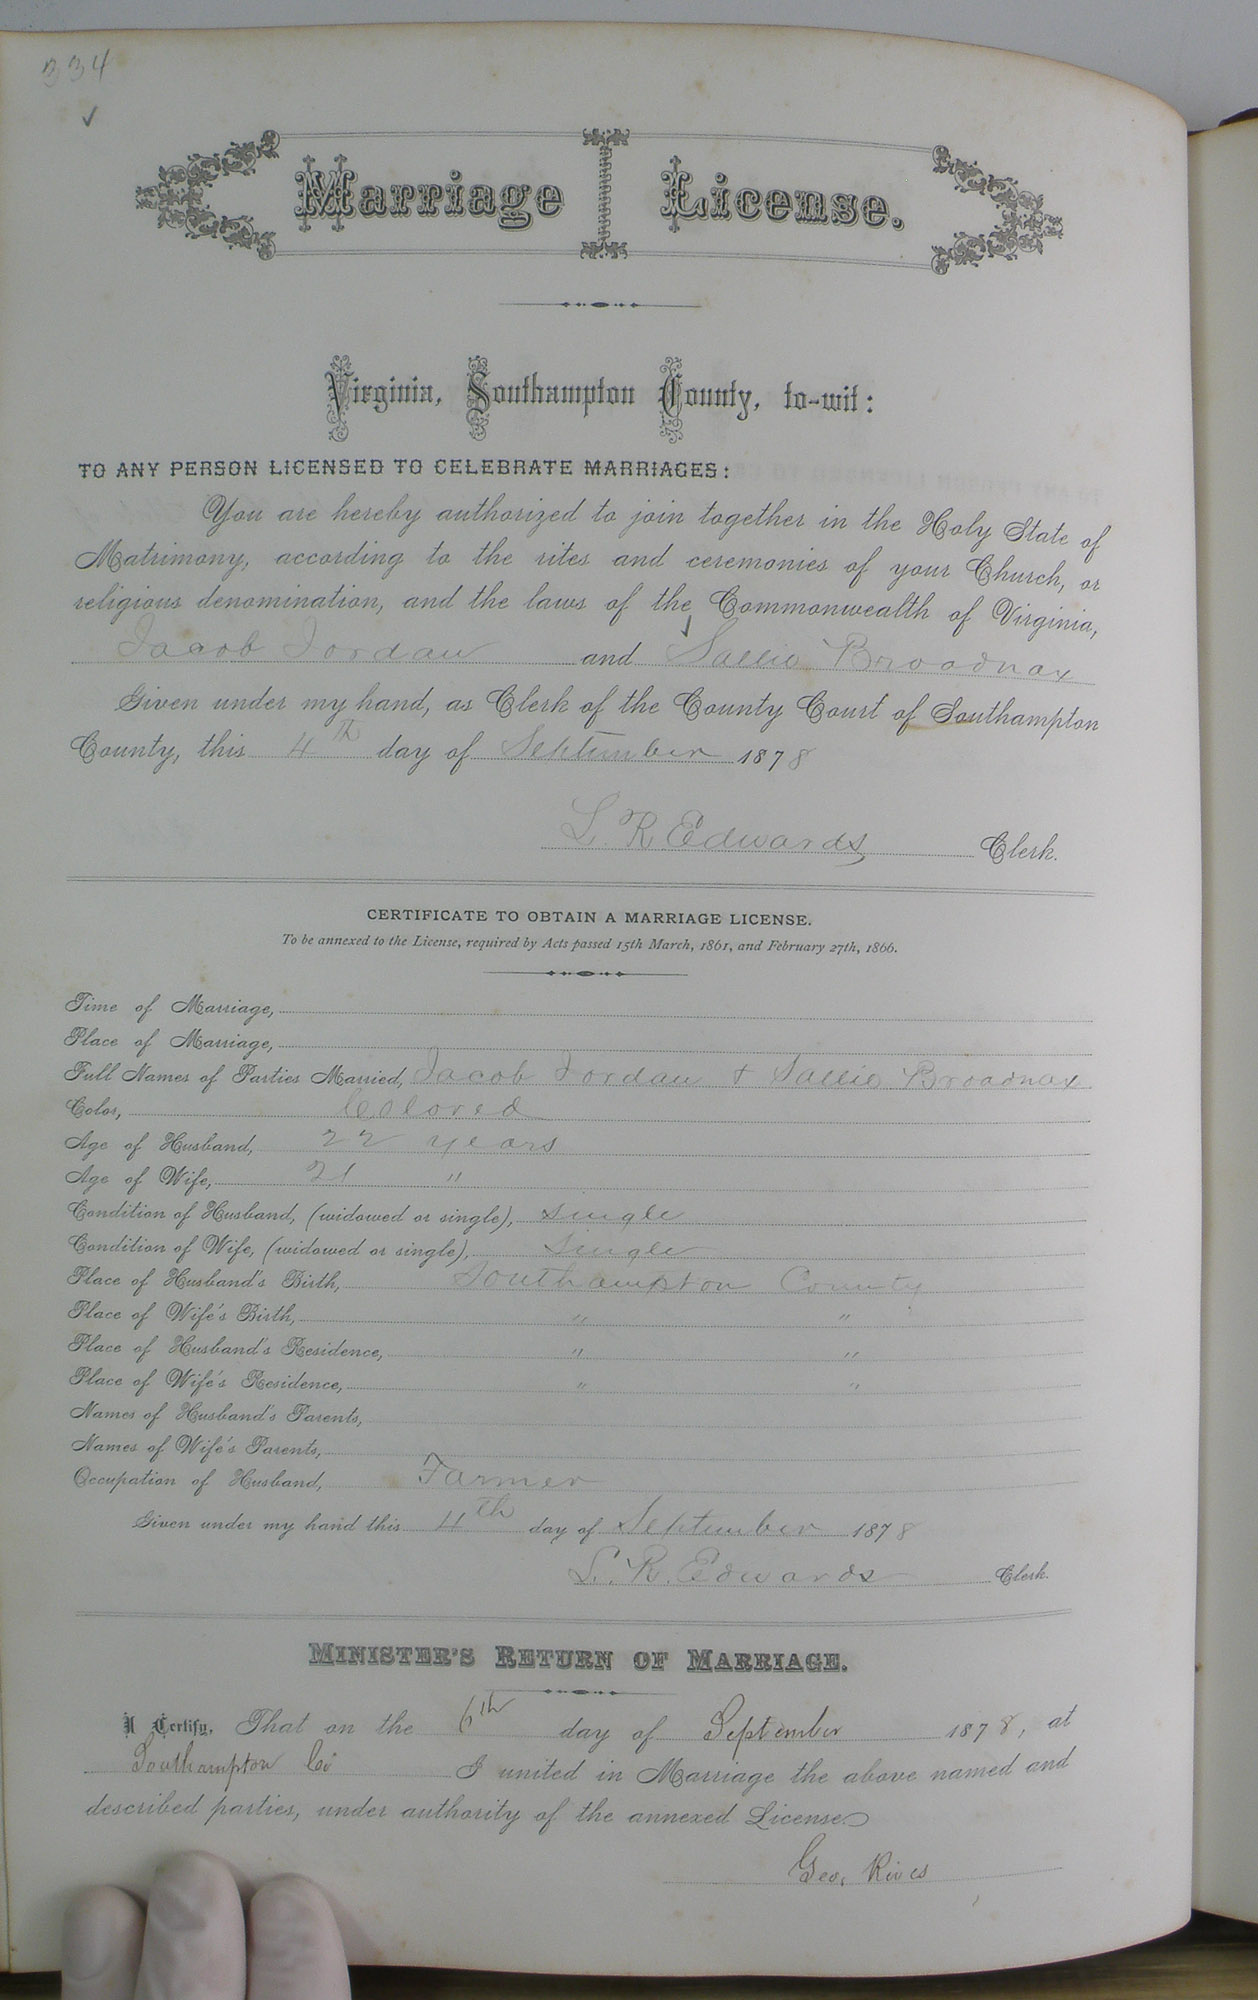 334
Marriage License.
Virginia, Southampton County, to-wit:
TO ANY PERSON LICENSED TO CELEBRATE MARRIAGES:
You are hereby authorized to join together in the Holy State of
Matrimony, according to the rites and ceremonies of your Church, or
religious denomination, and the laws of the Commonwealth of Virginia,
Jacob Jordan and Sallie Broadnax
Given under my hand, as Clerk of the County Court of Southampton
County, this 4th day of September 1878
L. R. Edwards Clerk.
CERTIFICATE TO OBTAIN A MARRIAGE LICENSE.
To be annexed to the License, required by Acts passed 15th March, 1861, and February 27th, 1866.
Time of Marriage,
Place of Marriage,
Full Names of Parties Married, Jacob Jordan & Sallie Broadnax
Color, Colored
Age of Husband, 22 years
Age of Wife, 21 "
Condition of Husband, (widowed or single), single
Condition of Wife, (widowed or single), single
Place of Husband's Birth, Southampton County
Place of Wife's Birth, " "
Place of Husband's Residence, " "
Place of Wife's Residence, " "
Names of Husband's Parents,
Names of Wife's Parents,
Occupation of Husband, Farmer
Given under my hand this 4th day of September 1878
L. R. Edwards Clerk.
MINISTER'S RETURN OF MARRIAGE.
I Certify, That on the 6th day of September 1878, at
Southampton Co I united in Marriage the above named and
described parties, under authority of the annexed License.
Geo. Rives